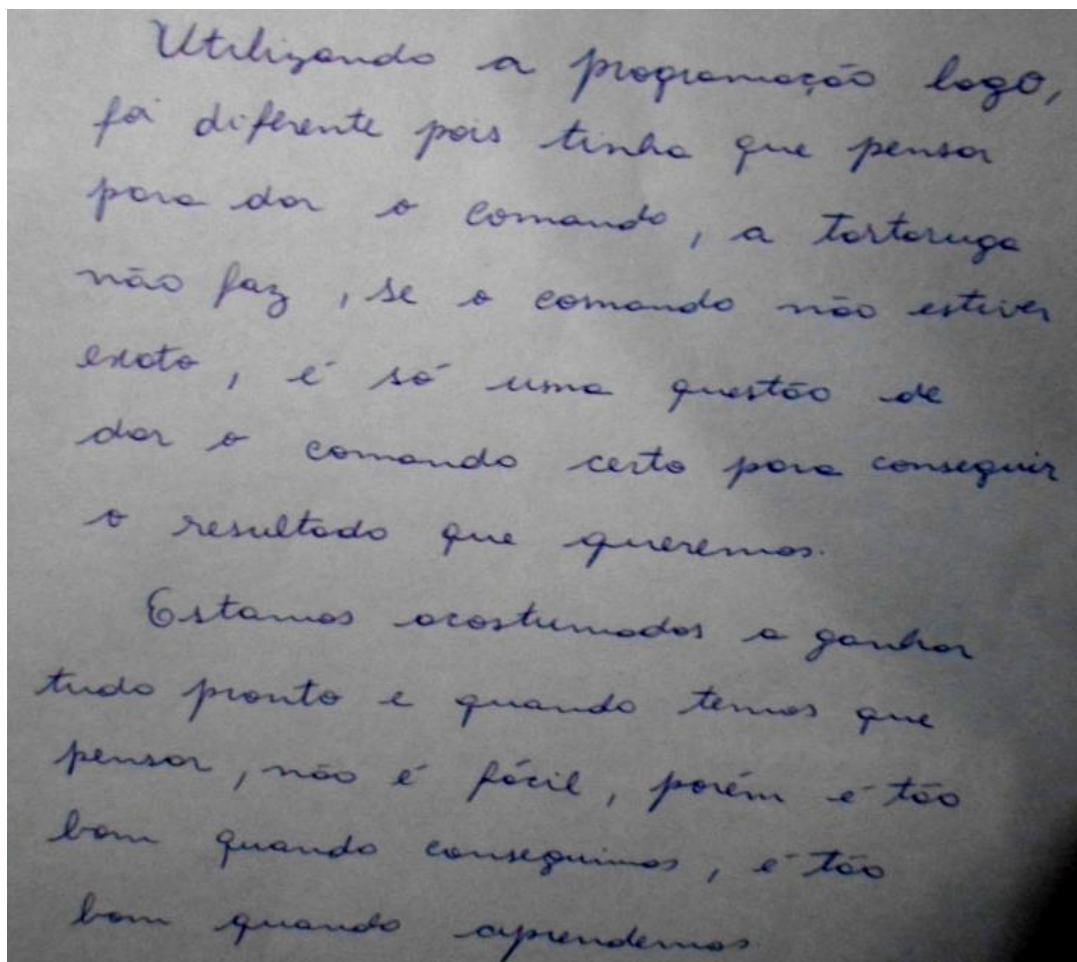 Utilizando a programação logo,
foi diferente pois tinha que pensar
para dar o comando, a tartaruga
não faz, se o comando não estiver
exato, é só uma questão de
dar o comando certo para conseguir
o resultado que queremos.
Estamos acostumados a ganhar
tudo pronto e quando temos que
pensar, não é fácil, porém é tão
bom quando conseguimos, é tão
bom quando aprendemos.